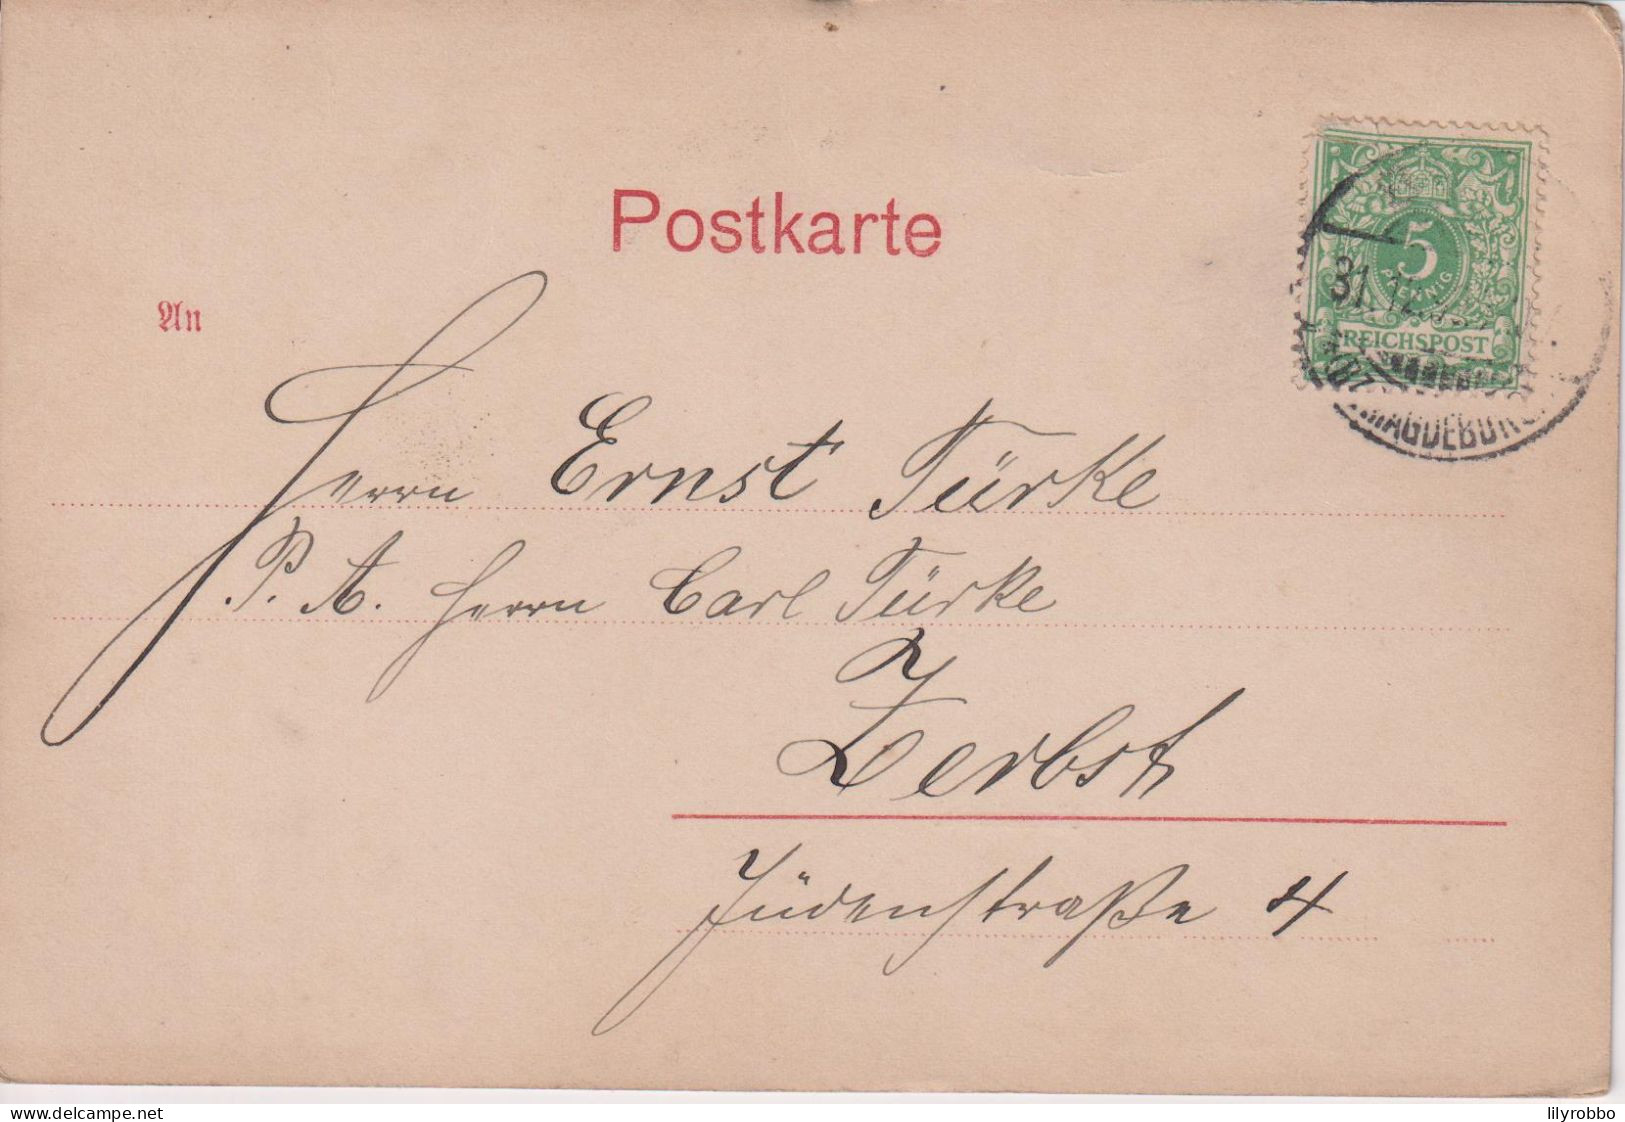 Postkarte
An
5
PFENNIG
REICHSPOST
31.12.
MAGDEBURG
Herrn Ernst Türke
P. A. Herrn Carl Türke
Zerbst
Jüdenstraße 4
www.delcampe.net
lilyrobbo